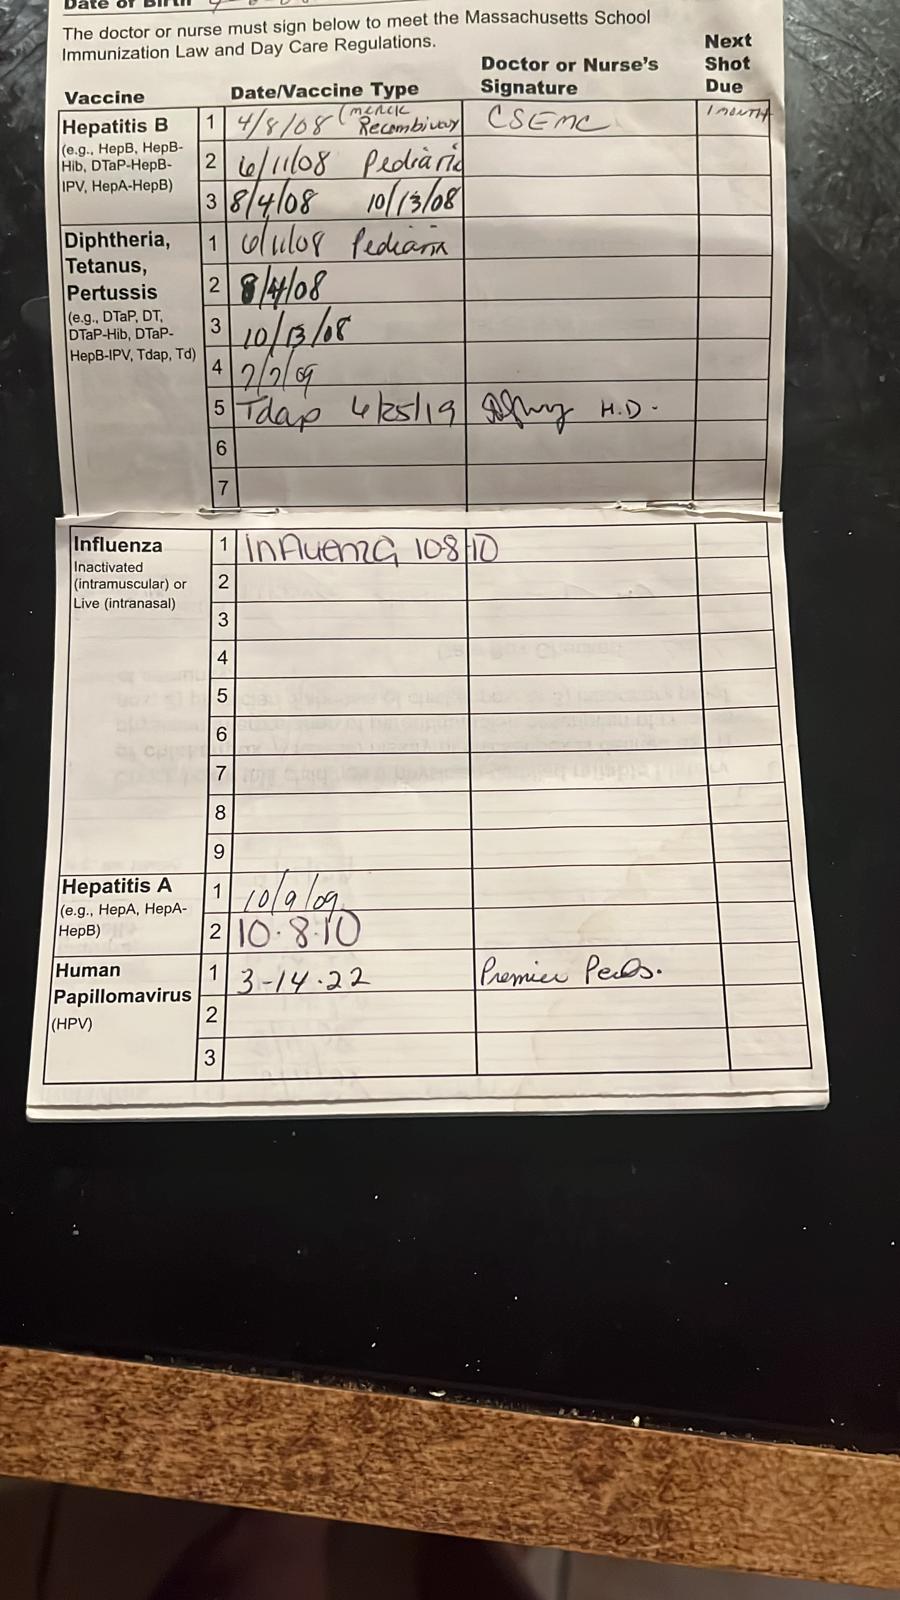 Date of Birth
The doctor or nurse must sign below to meet the Massachusetts School
Immunization Law and Day Care Regulations.
Vaccine Date/Vaccine Type Doctor or Nurse's Signature Next Shot Due
Hepatitis B
(e.g., HepB, HepB-
Hib, DTaP-HepB-
IPV, HepA-HepB)
1 4/8/08 (merck Recombivax CSEMC 1 MONTH
2 6/11/08 Pediarix
3 8/4/08 10/13/08
Diphtheria,
Tetanus,
Pertussis
(e.g., DTaP, DT,
DTaP-Hib, DTaP-
HepB-IPV, Tdap, Td)
1 6/11/08 Pediarix
2 8/4/08
3 10/13/08
4 7/7/09
5 Tdap 4/25/19 M.D.
6
7
Influenza
Inactivated
(intramuscular) or
Live (intranasal)
1 Influenza 10-8-10
2
3
4
5
6
7
8
9
Hepatitis A
(e.g., HepA, HepA-
HepB)
1 10/9/09
2 10.8.10
Human
Papillomavirus
(HPV)
1 3-14-22 Premier Peds.
2
3